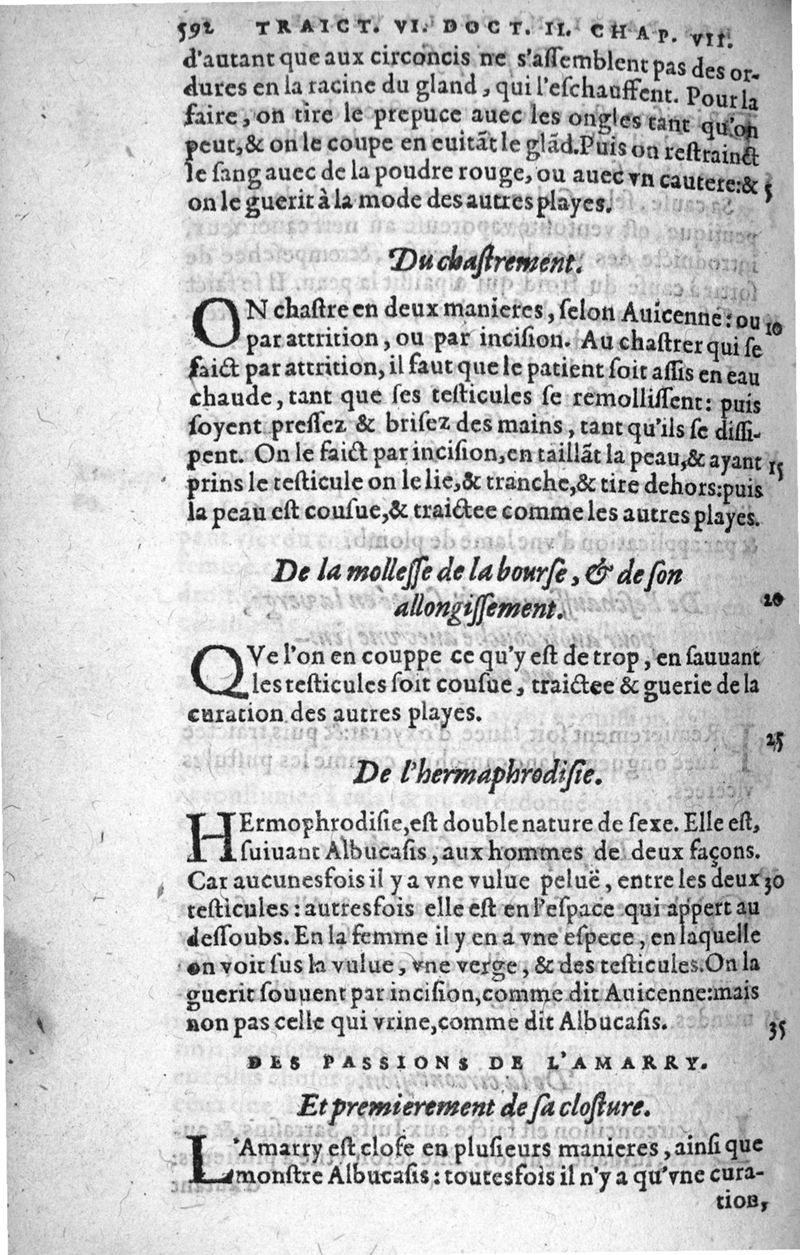 592 TRAICT. VI. DOCT. II. CHAP. VII.
d'autant que aux circoncis ne s'aſſemblent pas des or-
dures en la racine du gland, qui l'eſchauffent. Pour la
faire, on tire le prepuce auec les ongles tant qu'on
peut, & on le coupe en euitãt le glãd. Puis on reſtrainct
le ſang auec de la poudre rouge, ou auec vn cautere: & 5
on le guerit à la mode des autres playes.
Du chaſtrement.
ON chaſtre en deux manieres, ſelon Auicenne: ou 10
par attrition, ou par inciſion. Au chaſtrer qui ſe
faict par attrition, il faut que le patient ſoit aſſis en eau
chaude, tant que ſes teſticules ſe remolliſſent: puis
ſoyent preſſez & briſez des mains, tant qu'ils ſe diſſi-
pent. On le faict par inciſion, en taillãt la peau, & ayant 15
prins le teſticule on le lie, & tranche, & tire dehors: puis
la peau eſt couſue, & traictee comme les autres playes.
De la molleſſe de la bourſe, & de ſon
allongiſſement. 20
QVe l'on en couppe ce qu'y eſt de trop, en ſauuant
les teſticules ſoit couſue, traictee & guerie de la
curation des autres playes.
25
De l'hermaphrodiſie.
HErmophrodiſie, eſt double nature de ſexe. Elle eſt,
ſuiuant Albucaſis, aux hommes de deux façons.
Car aucunesfois il y a vne vulue peluë, entre les deux 30
teſticules: autresfois elle eſt en l'eſpace qui appert au
deſſoubs. En la femme il y en a vne eſpece, en laquelle
on voit ſus la vulue, vne verge, & des teſticules. On la
guerit ſouuent par inciſion, comme dit Auicenne: mais
non pas celle qui vrine, comme dit Albucaſis. 35
DES PASSIONS DE L'AMARRY.
Et premierement de ſa cloſture.
L'Amarry eſt cloſe en pluſieurs manieres, ainſi que
monſtre Albucaſis: toutesfois il n'y a qu'vne cura-
tion,